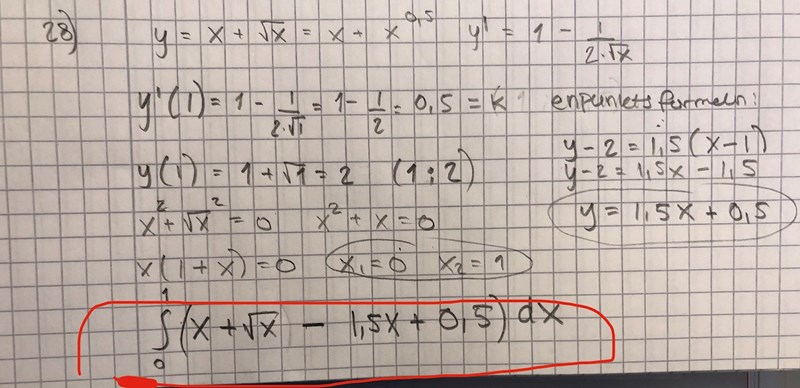 28) y = x + √x = x + x^0,5 y' = 1 - 1/(2·√x)
y'(1) = 1 - 1/(2·√1) = 1 - 1/2 = 0,5 = k enpunktsformeln:
y - 2 = 1,5(x-1)
y(1) = 1 + √1 = 2 (1;2) y-2 = 1,5x - 1,5
x² + √x² = 0 x² + x = 0 y = 1,5x + 0,5
x(1+x) = 0 x₁ = 0 x₂ = 1
∫₀¹ (x + √x - 1,5x + 0,5) dx